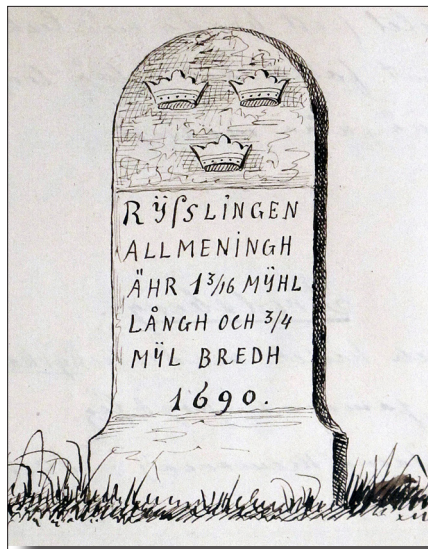 RŸſSLINGEN
ALLMENINGH
ÄHR 1 3/16 MŸHL
LÅNGH OCH 3/4
MŸL BREDH
1690.